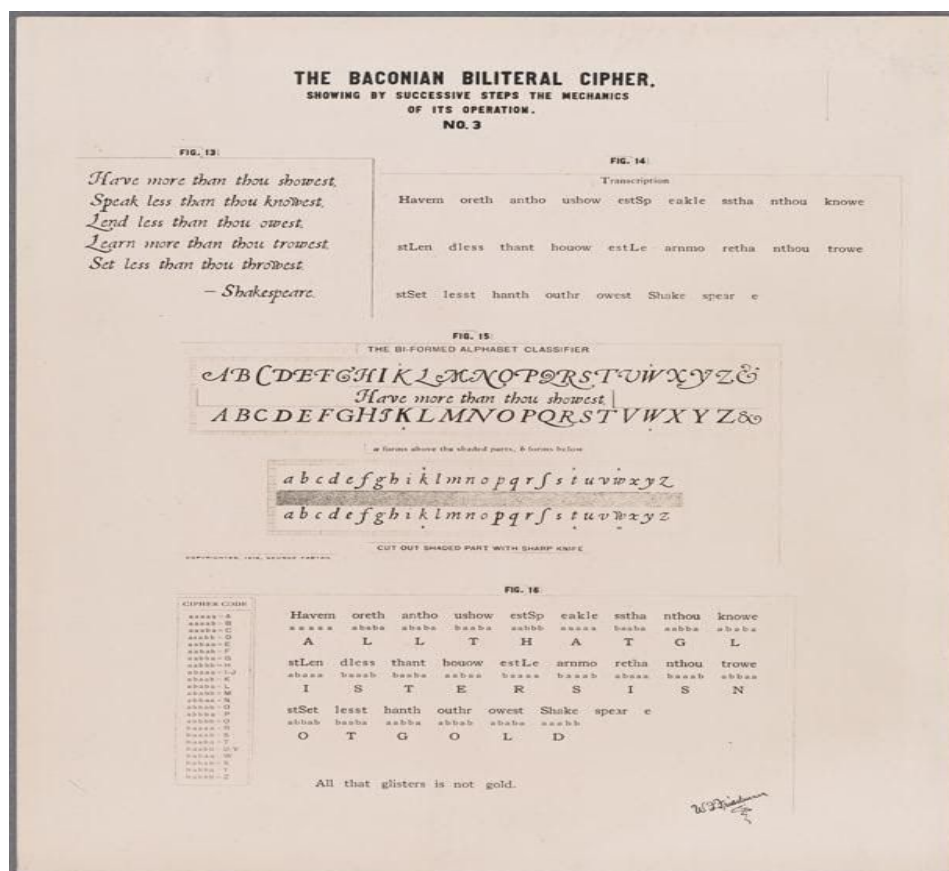 THE BACONIAN BILITERAL CIPHER,
SHOWING BY SUCCESSIVE STEPS THE MECHANICS
OF ITS OPERATION.
NO. 3
FIG. 13
Have more than thou showest,
Speak less than thou knowest,
Lend less than thou owest,
Learn more than thou trowest,
Set less than thou throwest.
— Shakespeare.
FIG. 14
Transcription
Havem oreth antho ushow estSp eakle sstha nthou knowe
stLen dless thant houow estLe arnmo retha nthou trowe
stSet lesst hanth outhr owest Shake spear e
FIG. 15
THE BI-FORMED ALPHABET CLASSIFIER
A B C D E F G H I K L M N O P Q R S T U W X Y Z &
Have more than thou showest,
A B C D E F G H I K L M N O P Q R S T V W X Y Z &
a forms above the shaded parts, b forms below
a b c d e f g h i k l m n o p q r ſ s t u v w x y z
a b c d e f g h i k l m n o p q r ſ s t u v w x y z
CUT OUT SHADED PART WITH SHARP KNIFE
COPYRIGHTED, GEORGE FABYAN
FIG. 16
CIPHER CODE
Havem oreth antho ushow estSp eakle sstha nthou knowe
aaaaa ababa ababa baaba aabbb aaaaa baaba aabba ababa
A L L T H A T G L
stLen dless thant houow estLe arnmo retha nthou trowe
abaaa baaab baaba aabaa baaaa baaab abaaa baaab abbaa
I S T E R S I S N
stSet lesst hanth outhr owest Shake spear e
abbab baaba aabba abbab ababa aaabb
O T G O L D
All that glisters is not gold.